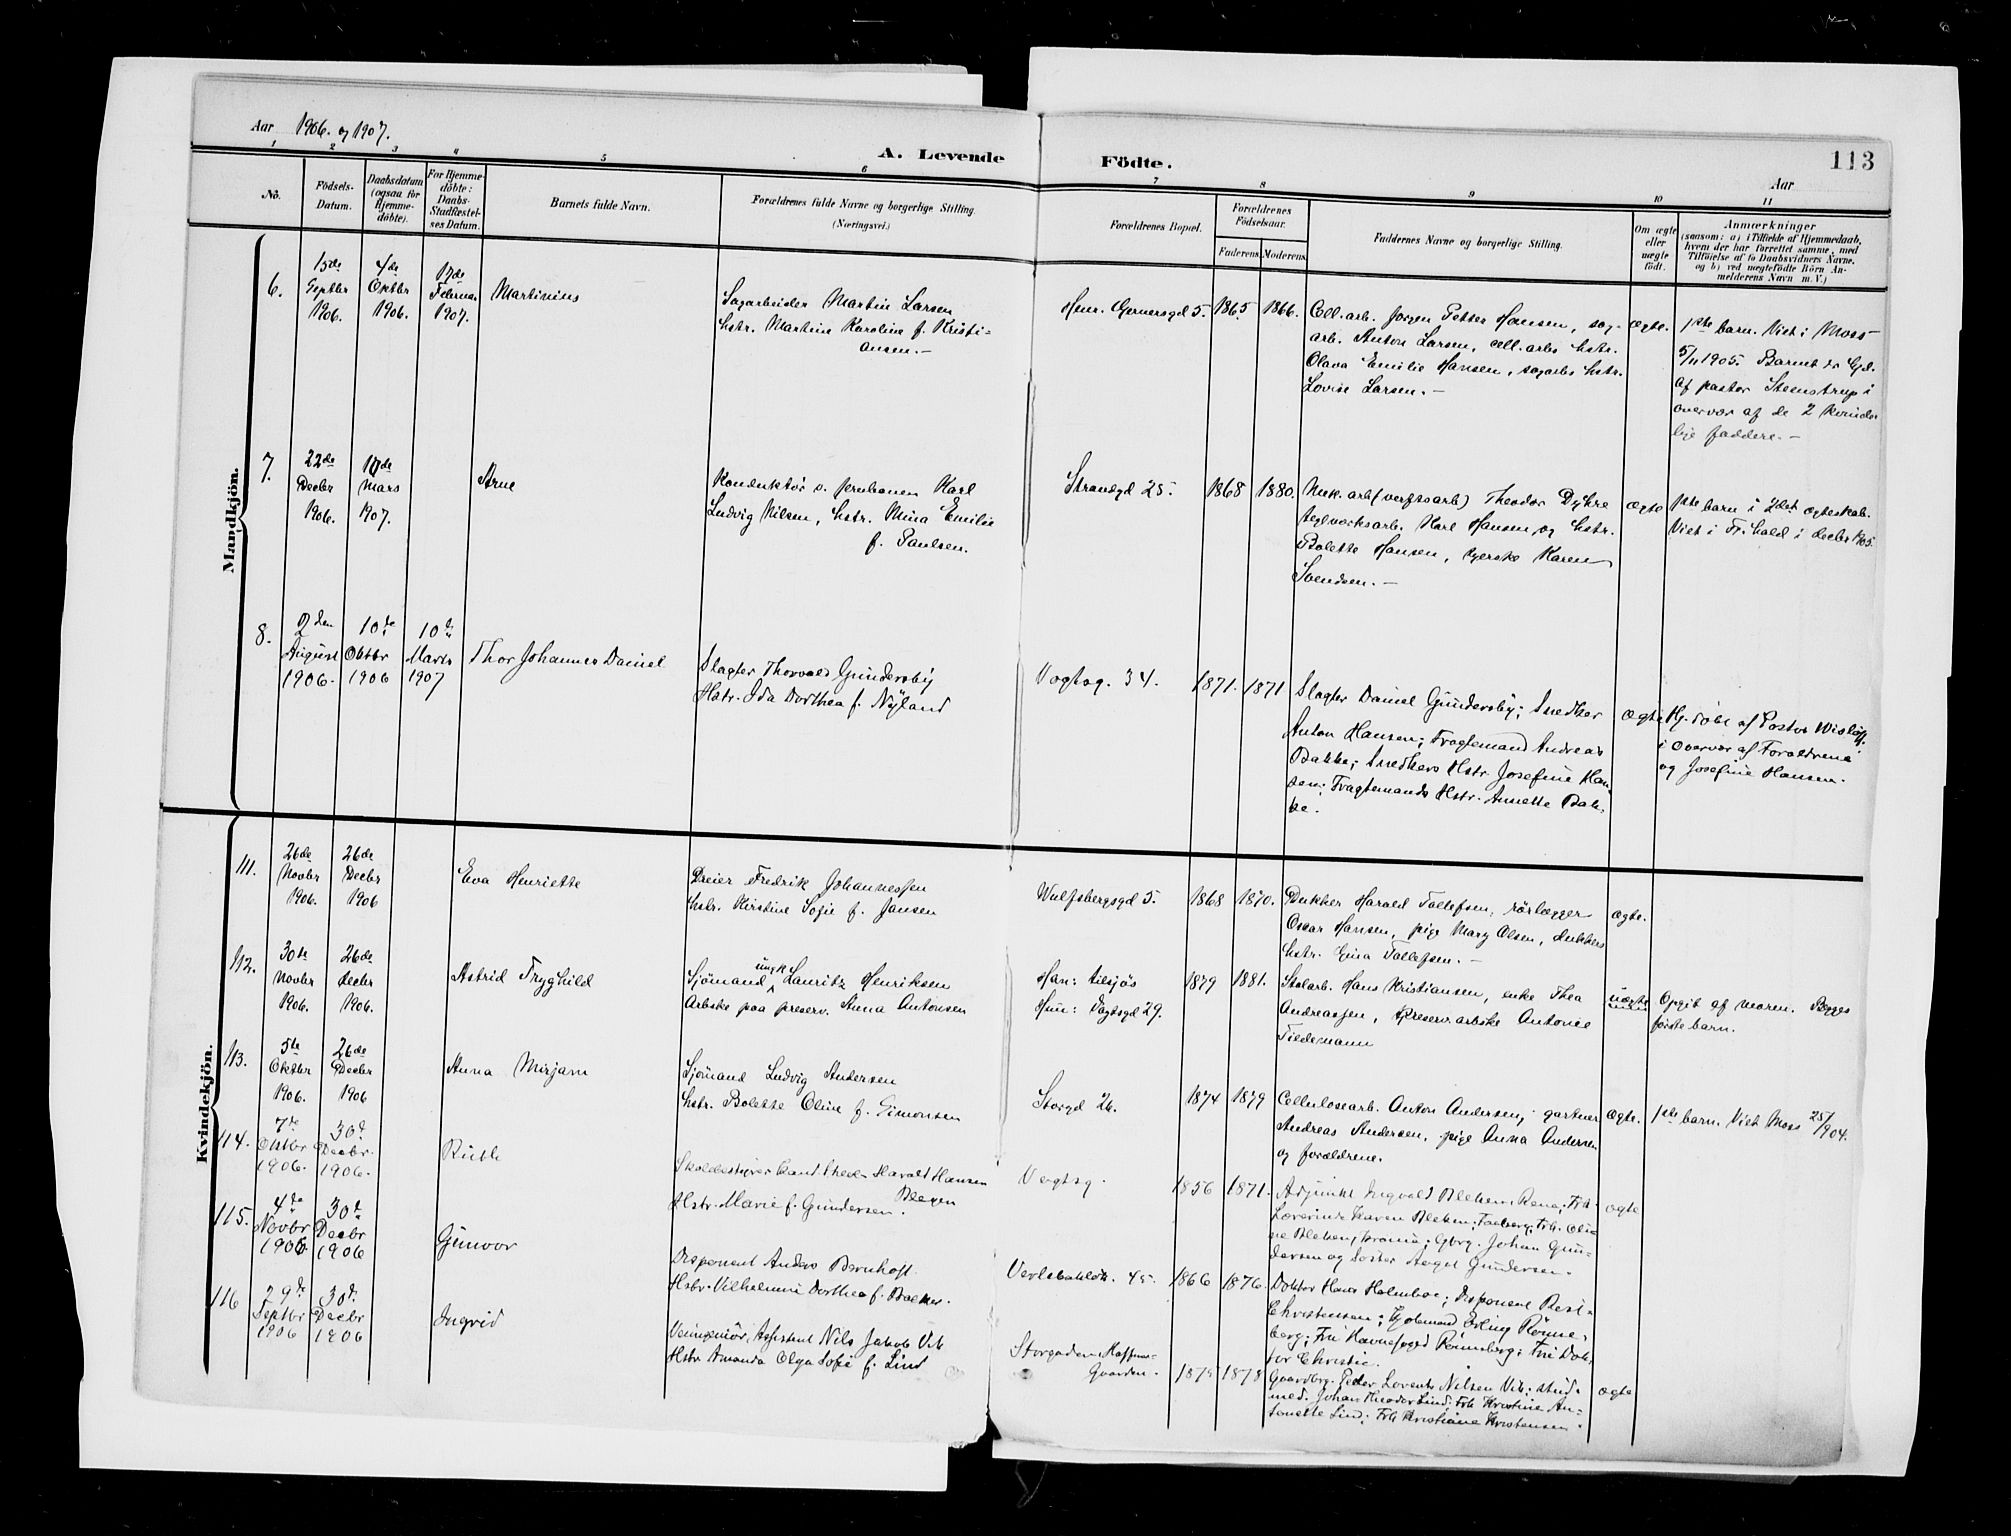 Aar 1906. og 1907.
A. Levende Födte.
113
Aar
1 2 3 4 5 6 7 8 9 10 11
No.
Födsels-
Datum.
Daabsdatum
(ogsaa for
Hjemme-
döbte).
For Hjemme-
döbte:
Daabs-
Stadfæstel-
ses Datum.
Barnets fulde Navn.
Forældrenes fulde Navne og borgerlige Stilling.
(Næringsvei.)
Forældrenes Bopæl.
Forældrenes
Födselsaar.
Faderens. Moderens.
Faddernes Navne og borgerlige Stilling.
Om ægte
eller
uægte
födt.
Anmærkninger
(saasom: a) i Tilfælde af Hjemmedaab,
hvem der har forrettet samme, med
Tilföielse af to Daabsvidners Navne.
og b) ved uægtefödte Börn An-
melderens Navn m. V.)
Mandkjön.
6.
15de
Septbr
1906.
4de
Oktbr
1906.
17de
Februar
1907.
Martinius
Sagarbeider Martin Larsen
hstr. Martine Karoline f. Kristi-
ansen.-
Henr. Gernersgd 5.
1865.
1866.
Cell. arb. Jörgen Petter Hansen, sag-
arb. Anton Larsen, cell. arbs hstr.
Olava Emilie Hansen, sagarbs hstr.
Lovise Larsen. -
ægte.
1ste barn. Viet i Moss
5/11 1905. Barnet er hjd.
af pastor Steenstrup i
overvær af de 2 kvinde-
lige faddere. -
7.
22de
Decbr
1906.
17de
Mars
1907.
Arne
Konduktör v. jernbanen Karl
Ludvig Nilsen, hstr. Mina Emilie
f. Paulsen.
Strandgd 25.
1868
1880.
Mek. arb (verftsarb) Theodor Dykre
teglværksarb. Karl Hansen, og hstr.
Bolette Hansen, syerske Karen
Svendsen. -
ægte
1ste barn i 2det ægteskab.
Viet i Fr. hald i decbr 1905.
8.
2den
August
1906.
10de
Oktbr
1906
10de
Marts
1907
Thor Johannes Daniel
Slagter Thorvald Gundersby
Hstr. Ida Dorthea f. Nyland
Vogtsg. 34.
1871.
1871
Slagter Daniel Gundersby; Snedker
Anton Hansen; Fragtemand Andreas
Bakke; Snedkers Hstr Josefine Han-
sen; Fragtemands Hstr. Annette Bak-
ke.
ægte
Hj. döbt af Pastor Wisløff
i Overvær af Forældrene
og Josefine Hansen.
Kvindekjön.
111.
26de
Novbr
1906.
26de
Decbr
1906
Eva Henriette
Dreier Fredrik Johannessen
hstr. Kirstine Sofie f. Jansen
Wulfsbergsgd 5.
1868
1870.
Dukker Harald Tollefsen, rörlægger
Oscar Hansen, pige Mary Olsen, dukkers
hstr. Gina Tollefsen. -
ægte.
112.
30te
Novbr
1906.
26de
Decbr
1906.
Astrid Tryghild
Sjömand ungk Lauritz Henriksen
Arbske paa preserv. Anna Antonsen
Han: tilsjös
Hun: Vogtsgd 29.
1879
1881.
Stalarb. Hans Kristiansen, enke Thea
Andreassen, preserv. arbske Antonie
Tiedemann
uægte
Opgit af moren. Begges
förste barn.
113.
5te
Oktbr
1906.
26de
Decbr
1906
Anna Mirjam
Sjömand Ludvig Andersen
hstr. Bolette Oline f. Simonsen
Storgd 26.
1874
1879
Cellulosearb. Anton Andersen, gartner
Andreas Andersen, pige Anna Andersen
og forældrene.
ægte.
1ste barn. Viet Moss 25/ 1904.
114.
7de
Oktbr
1906.
30te
Decbr.
1906.
Ruth
Skolebestyrer Cand theol. Harald Hansen
Bleken
Hstr. Marie f. Gundersen.
Vogtsg.
1856
1871.
Adjunkt Ingvald Bleken, Rena; Frk.
Lærerinde Karen Bleken; Faaberg; Frk. Oli-
ne Bleken, Kr.ania; Gbrg. Johan Gun-
dersen og Söster Aagot Gundersen.
ægte
115.
4de
Novbr
1906
30te
Decbr
1906
Gunvor
Disponent Anders Bernhoft
Hstr. Vilhelmine Dorthea f. Balker.
Verlebakken. 45.
1866
1876.
Doktor Hans Holmboe; Disponent
Christensen; Erling Rönne-
berg; Fru Havnefoged Rönneberg; Fru Dok-
tor Christie.
116
29de
Septbr
1906
30te
Decbr
1906
Ingrid
Veiingeniör, Assistent Nils Jakob Vik
Hstr Amanda Olga Sofie f. Lind
Storgaden
Gaarden.
1875
1878
Gaardbrg. Peder Lorents Nilsen Vik; stud.
med. Johan Theodor Lind; Frk Kristine An-
tonette Lind; Frk Kristiane Kristensen.
ægte